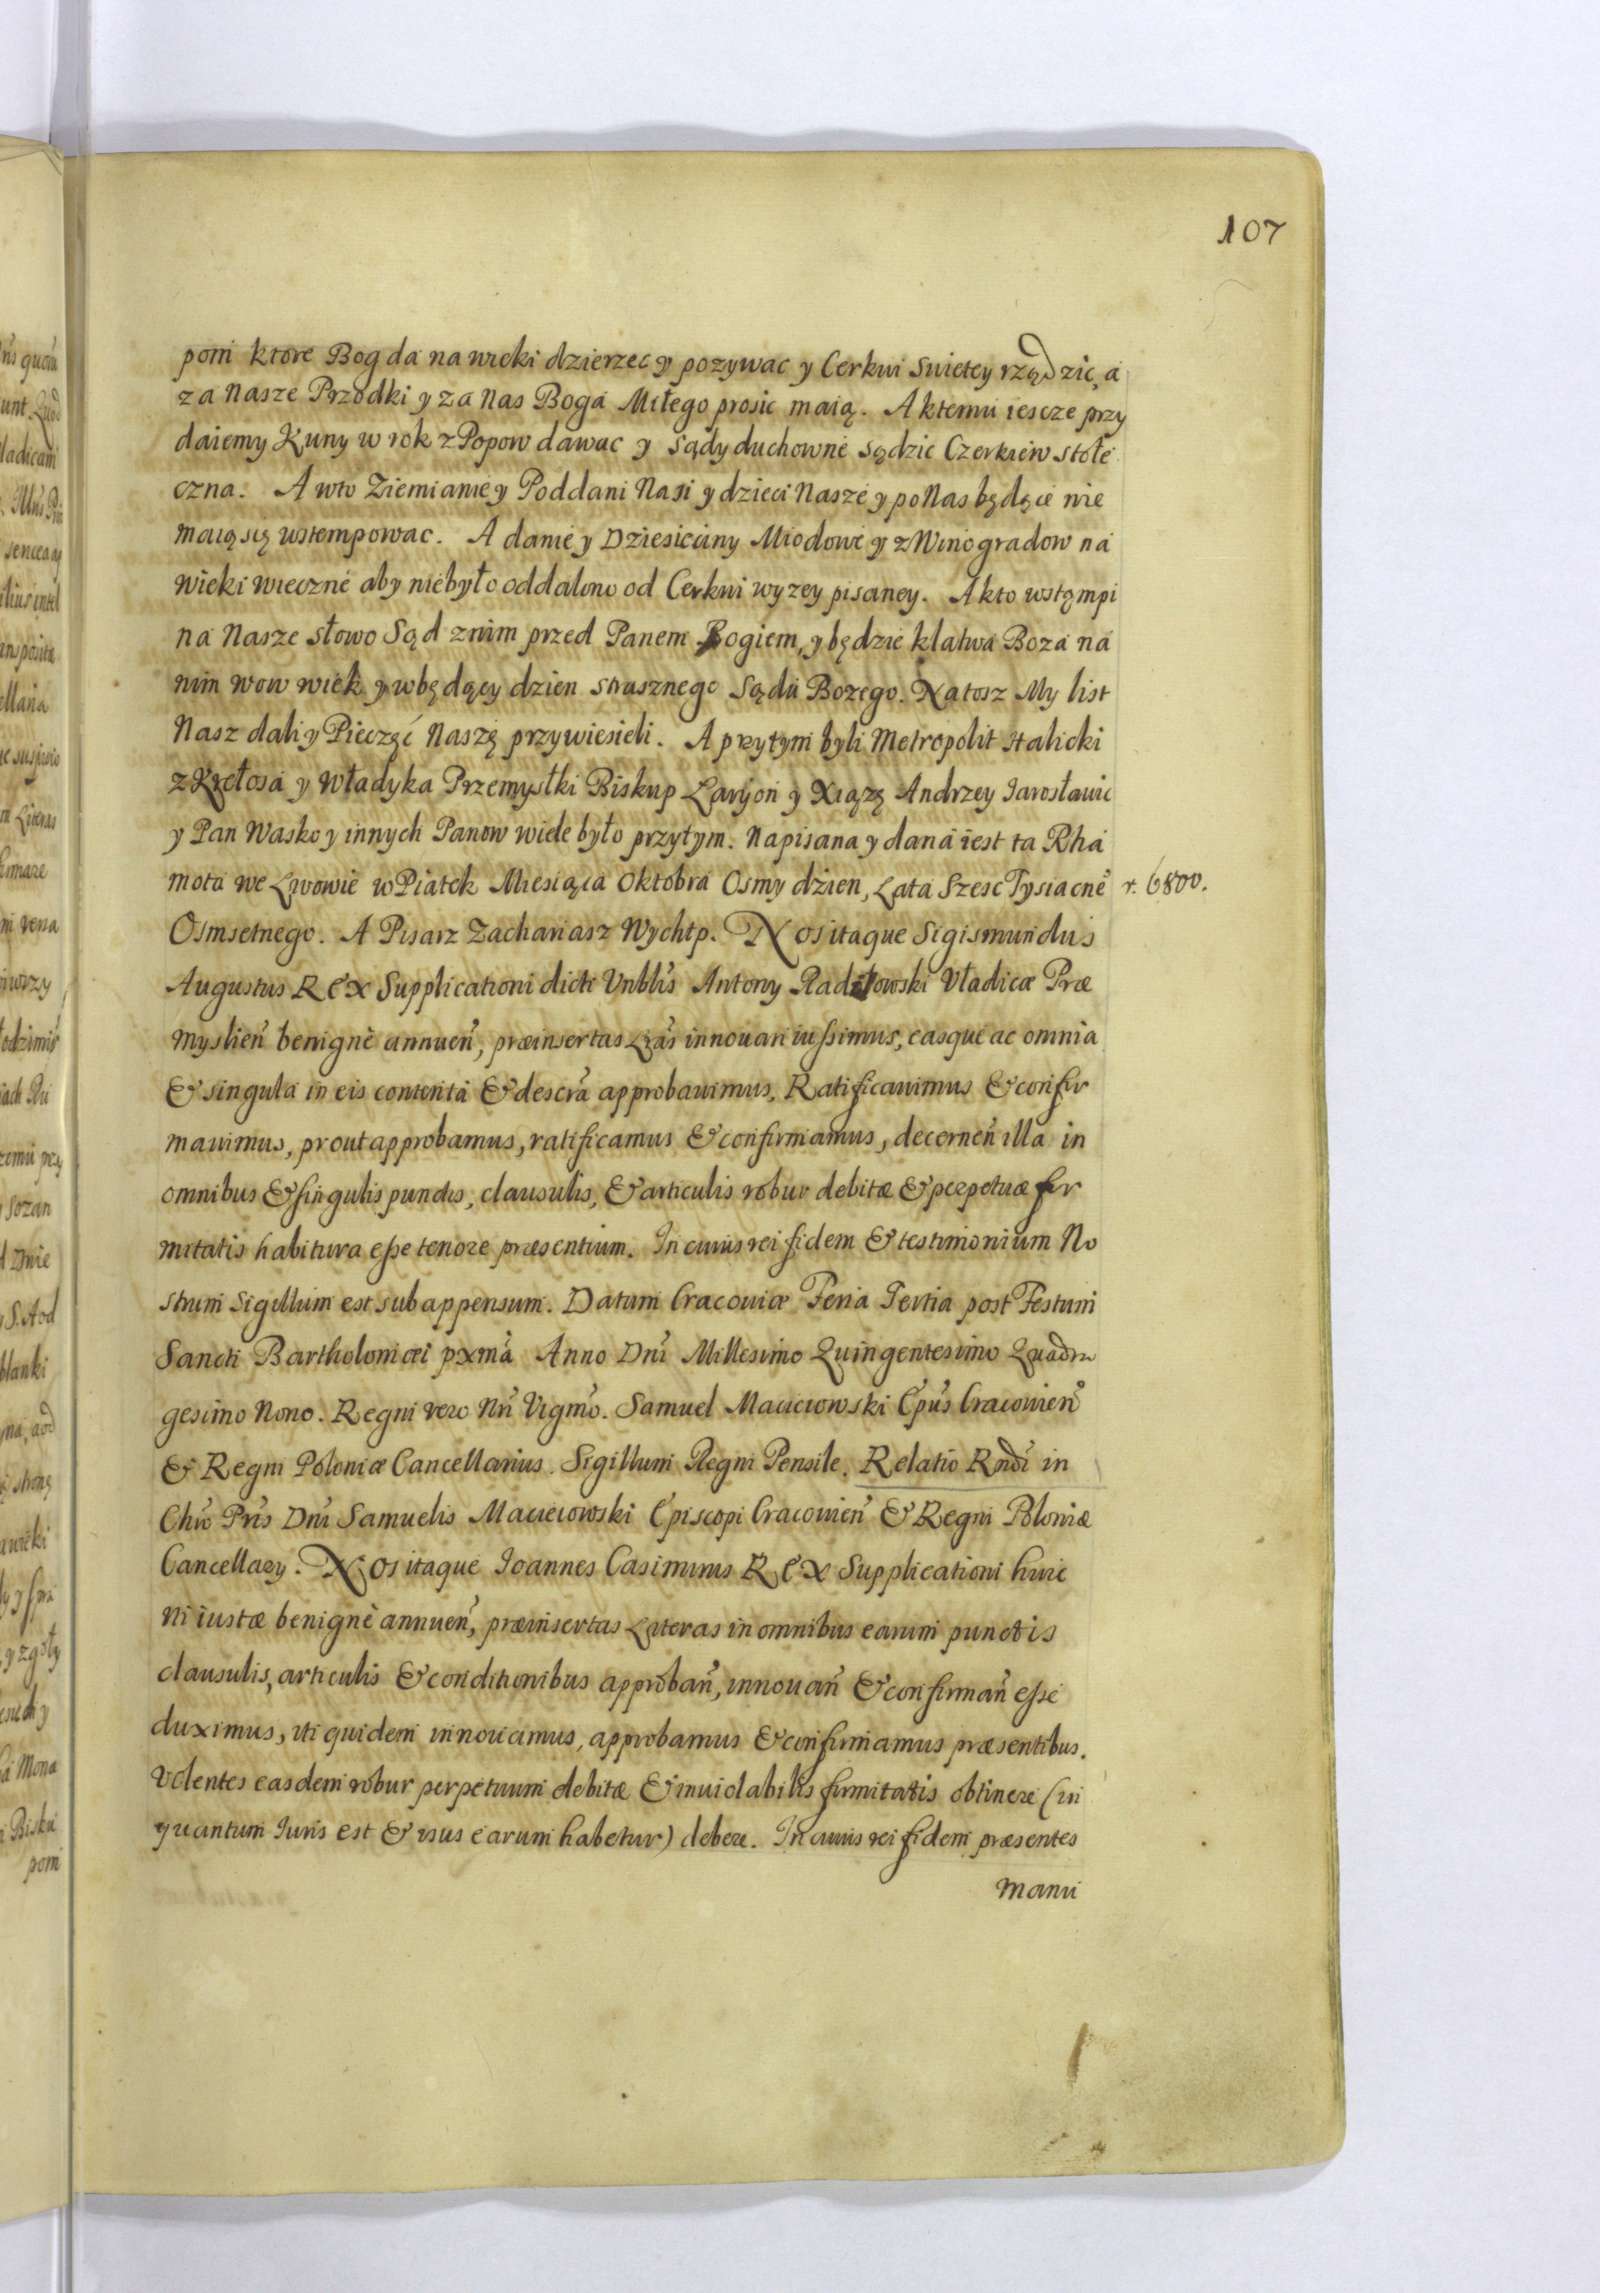 107
pom ktore Bog da na wieki dzierzec y pozywac y Cerkwi Swietey rządzic, a
za Nasze Przodki y za Nas Boga Miłego prosic maią. A ktemu iescze przy
daiemy Kuny w rok z Popow dawac y Sądy duchowne sądzic Czerkiew stołe
czna. A wto Ziemianie y Poddani Nasi y dzieci Nasze y po Nas będące nie
maią się wstempowac. A danie y Dziesięciny Miodowe y z Winogradow na
wieki wieczne aby niebyło oddalono od Cerkwi wyzey pisaney. A kto wstąmpi
na Nasze słowo Sąd znim przed Panem Bogiem, y będzie klatwa Boza na
nim wow wiek y wbędący dzien strasznego Sądu Bozego. Natosz My list
Nasz dali y Pieczęć Naszę przywiesieli. A przytym byli Metropolit Halicki
z Krełosa y Władyka Przemyslki Biskup Laryon y Xiązę Andrzey Jarosławic
y Pan Wasko y innych Panow wiele było przytym. Napisana y dana iest ta Rha
mota we Lwowie w Piatek Miesiąca Oktobra Osmy dzien, Lata Szesc Tysiacne° r. 6800.
Osmsetnego. A Pisarz Zachariasz Wychtp. Nos itaque Sigismundus
Augustus Rex Supplicationi dicti Vnblis Antony Radiłowski Vładicæ Præ
myslien benignè annuen, præinsertas Lras innouari iussimus, easque ac omnia
& singula in eis contenta & descra approbauimus, Ratificauimus & confir
mauimus, prout approbamus, ratificamus & confirmamus, decernen illa in
omnibus & singulis punctis, clausulis, & articulis robur debitæ & perpetuæ fir
mitatis habitura esse tenore præsentium. In cuius rei fidem & testimonium No
strum Sigillum est subappensum. Datum Cracouiæ Feria Tertia post Festum
Sancti Bartholomæi pxma Anno Dni Millesimo Quingentesimo Quadra
gesimo Nono. Regni vero Nri Vigmo. Samuel Macieiowski Epus Cracouien
& Regni Poloniæ Cancellarius. Sigillum Regni Pensile. Relatio Rndi in
Chro Pris Dni Samuelis Macieiowski Episcopi Cracouien & Regni Poloniæ
Cancellary. Nos itaque Ioannes Casimirus Rex Supplicationi huic
ni iustæ benignè annuen, præinsertas Literas in omnibus earum punctis
clausulis, articulis & conditionibus approban, innouan & confirman esse
duximus, iti quidem innouamus, approbamus & confirmamus præsentibus.
Volentes easdem robur perpetuum debitæ & inuiolabilis firmitatis obtinere (in
quantum Iuris est & usus earum habetur) debere. In cuius rei fidem præsentes
manu